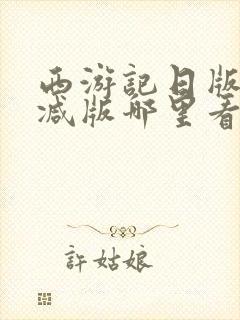 西游記日版
减版哪里看
許姑娘